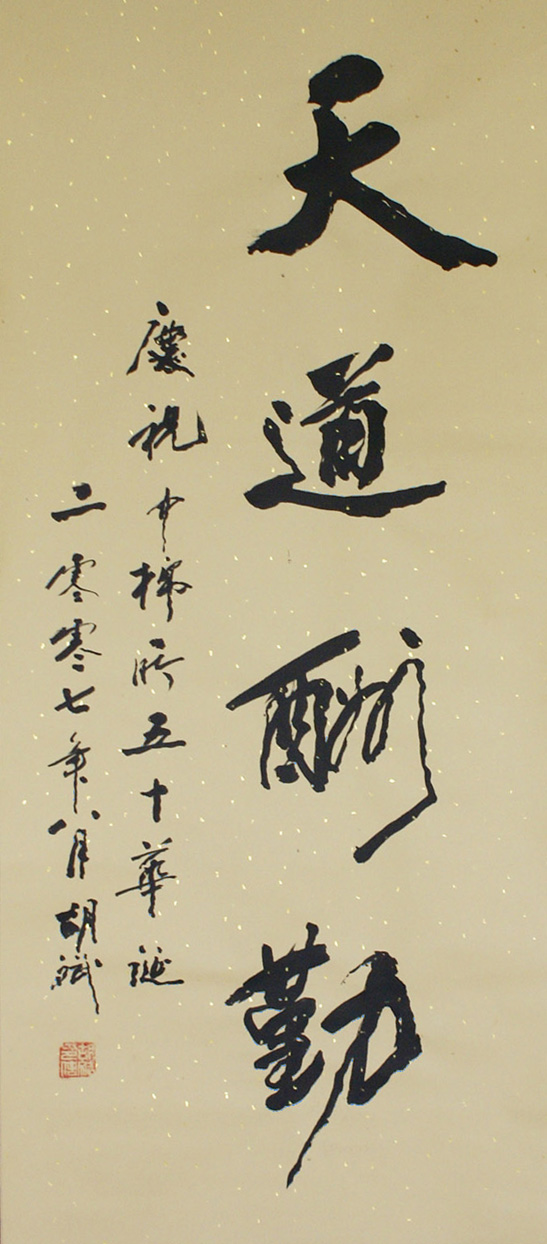 天道酬勤
慶祝中科所五十華誕
二零零七年八月胡斌